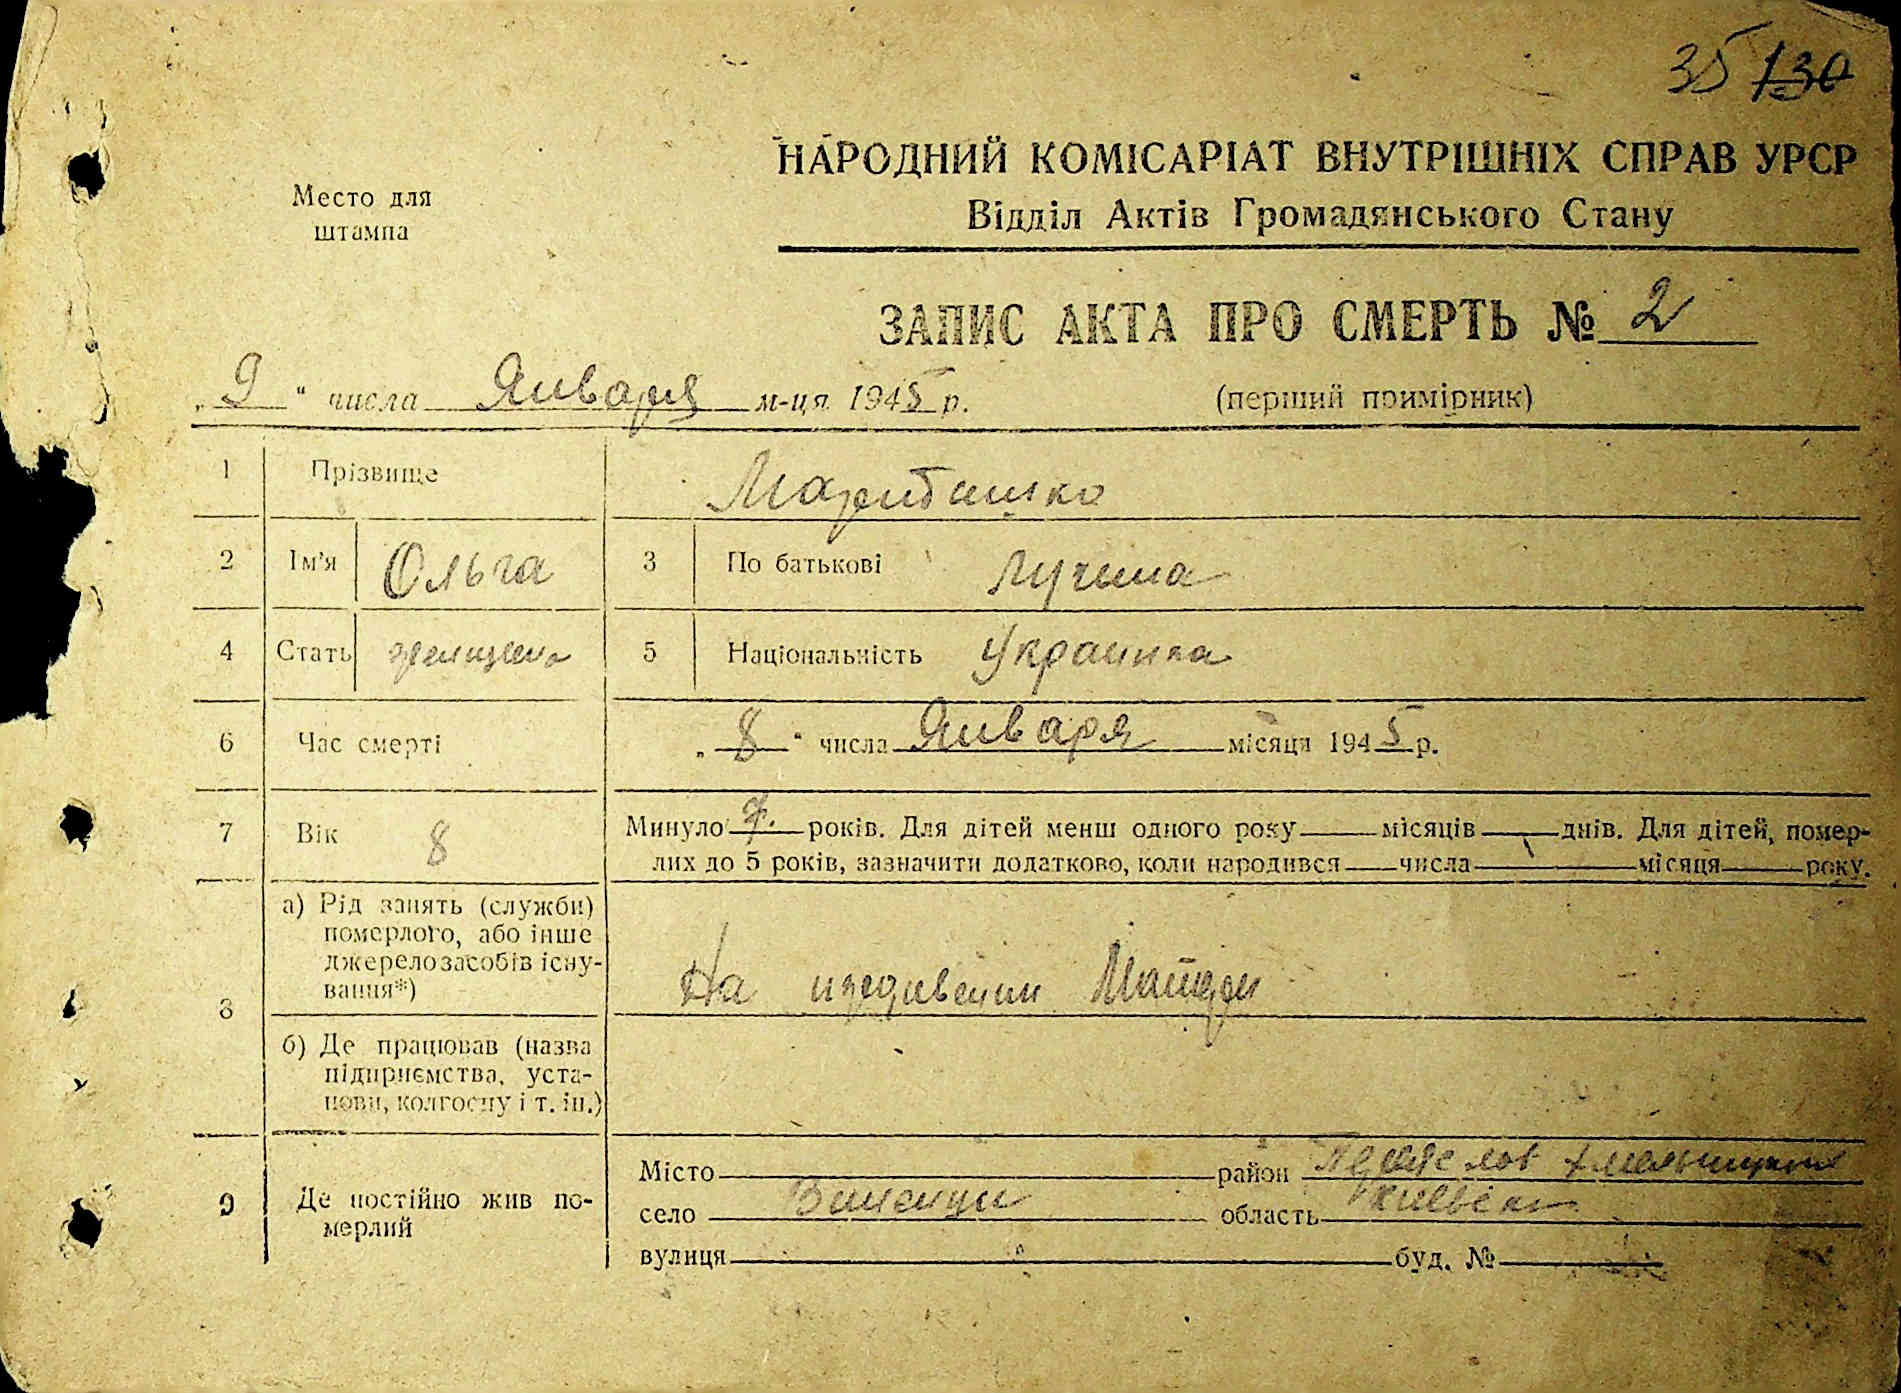 35 130
НАРОДНИЙ КОМІСАРІАТ ВНУТРІШНІХ СПРАВ УРСР
Відділ Актів Громадянського Стану
Место для
штампа
ЗАПИС АКТА ПРО СМЕРТЬ № 2
„ 9 “ числа Января м-ця 1945 р.
(перший примірник)
1 Прізвище
2 Ім'я Ольга 3 По батькові
4 Стать женщина 5 Національність Украинка
6 Час смерті „ 8 “ числа Января місяця 1945 р.
7 Вік 8 Минуло років. Для дітей менш одного року місяців днів. Для дітей, помер-
лих до 5 років, зазначити додатково, коли народився числа місяця року.
8 а) Рід занять (служби)
померлого, або інше
джерело засобів існу-
вання*)
На иждивении Матери
б) Де працював (назва
підприємства, уста-
нови, колгоспу і т. ін.)
9 Де постійно жив по-
мерлий
Місто район Переяслав Хмельницкий
село область Киевск
вулиця буд. №